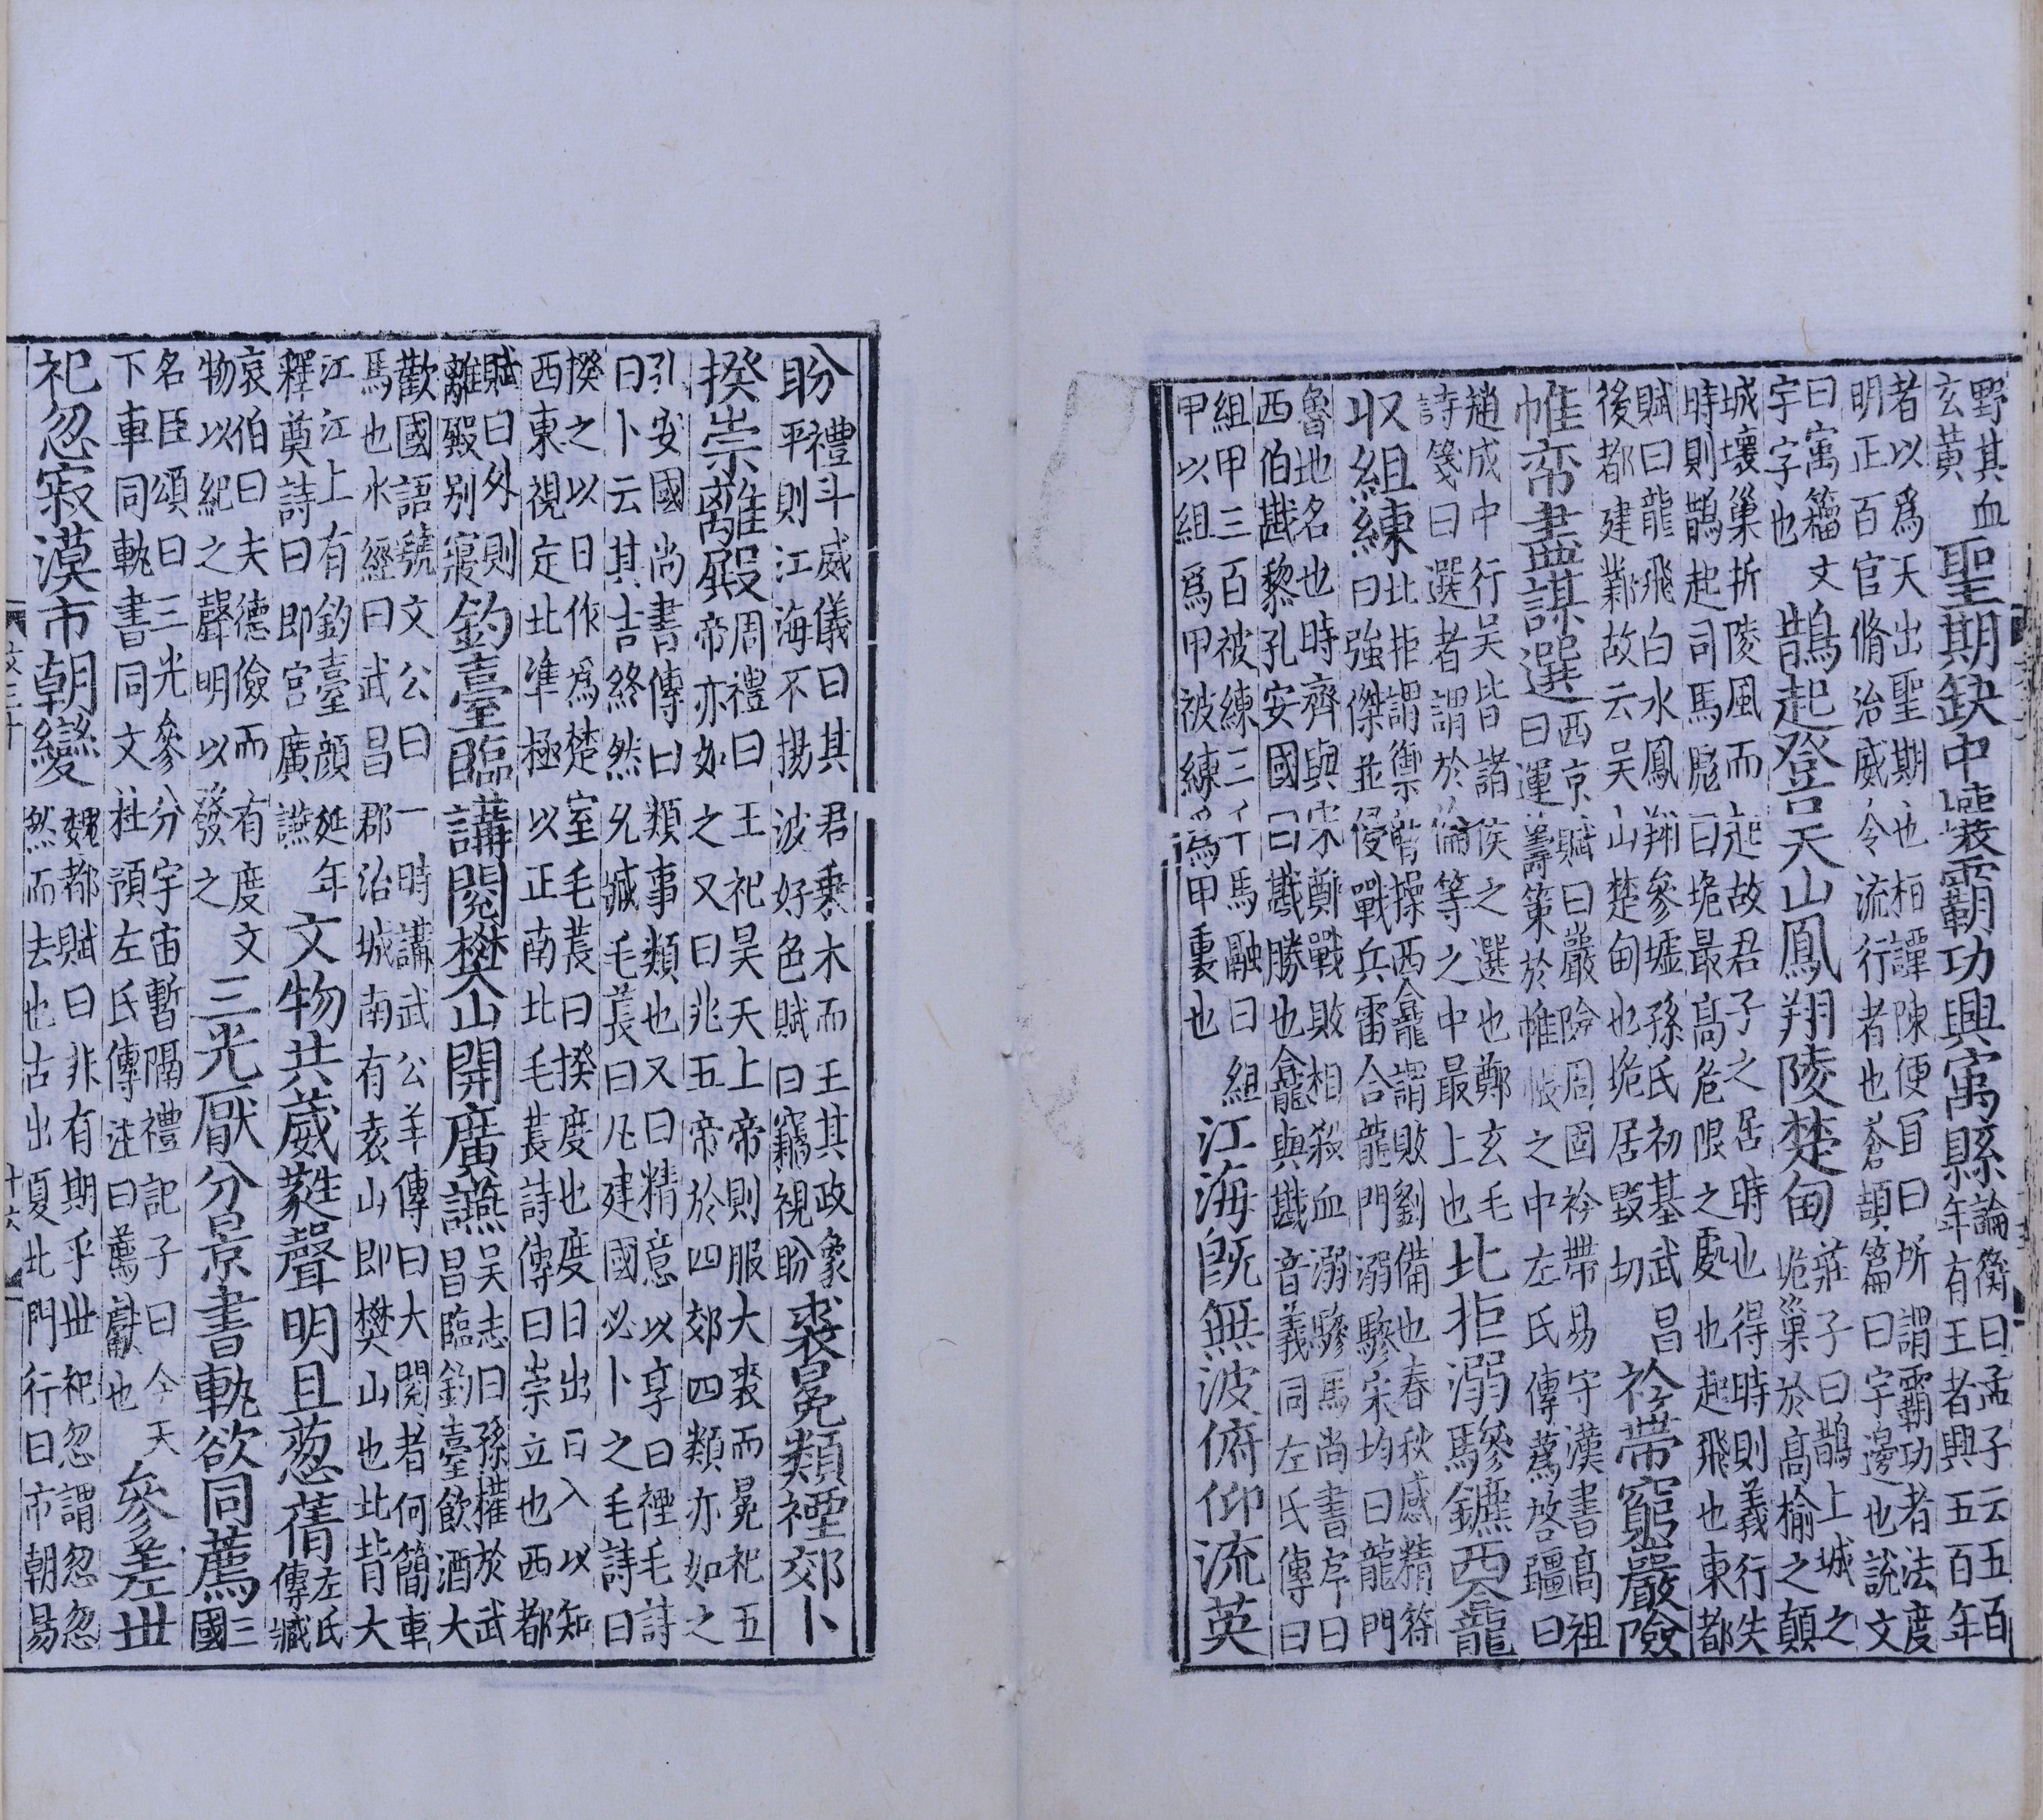 野其血玄黃聖期缺中壤霸功興寓縣論衡曰孟子云五百年有王者興五百年
者以爲天出聖期也桓譚陳便冝曰所謂霸功者法度
明正百官脩治威令流行者也蒼頡篇曰宇邊也說文
曰寓籀文宇字也鵲起登吴山鳳翔陵楚甸莊子曰鵲上城之垝巢於高榆之顛
城壞巢折陵風而起故君子之居時也得時則義行失
時則鵲起司馬彪曰垝最高危限之處也起飛也東都
賦曰龍飛白水鳳翔參墟孫氏初基武昌
後都建鄴故云吴山楚甸也垝居毀切衿帶窮巖險
帷帟盡謀選西京賦曰巖險周固衿帶易守漢書高祖
曰運籌策於帷帳之中左氏傳蔿啓疆曰
趙成中行吴皆諸侯之選也鄭玄毛
詩箋曰選者謂於倫等之中最上也北拒溺驂鑣西龕
収組練北拒謂禦曹操西龕謂敗劉備也春秋感精符
曰強傑並侵戰兵雷合龍門溺驂宋均曰龍門
魯地名也時齊與宋鄭戰敗相殺血溺驂馬尚書序曰
西伯戡黎孔安國曰戡勝也龕與戡音義同左氏傳曰
組甲三百被練三千馬融曰組
甲以組爲甲被練爲甲裏也江海旣無波俯仰流英
盼禮斗威儀曰其君乗木而王其政象
平則江海不揚波好色賦曰竊視盼裘冕類禋郊卜
揆崇離殿周禮曰王祀昊天上帝則服大裘而冕祀五
帝亦如之又曰兆五帝於四郊四類亦如之
孔安國尚書傳曰類事類也又曰精意以享曰禋毛詩
曰卜云其吉終然允臧毛萇曰凡建國必卜之毛詩曰
揆之以日作爲楚室毛萇曰揆度也度日出日入以知
西東視定北準極以正南北毛萇詩傳曰崇立也西都
賦曰外則離殿别寢釣臺臨講閱樊山開廣讌吴志曰孫權於武昌臨釣臺飲酒大
歡國語虢文公曰一時講武公羊傳曰大閱者何簡車
馬也水經曰武昌郡治城南有袁山即樊山也北背大
江江上有釣臺顔延年釋奠詩曰即宫廣讌文物共葳蕤聲明且葱蒨左氏傳臧
哀伯曰夫德儉而有度文物以紀之聲明以發之三光厭分景書軌欲同薦三國
名臣頌曰三光參分宇宙暫隔禮記子曰今天
下車同軌書同文杜預左氏傳注曰薦獻也參差世
祀忽寂漠市朝變魏都賦曰非有期乎世祀忽謂忽忽
然而去也古出夏北門行曰市朝易